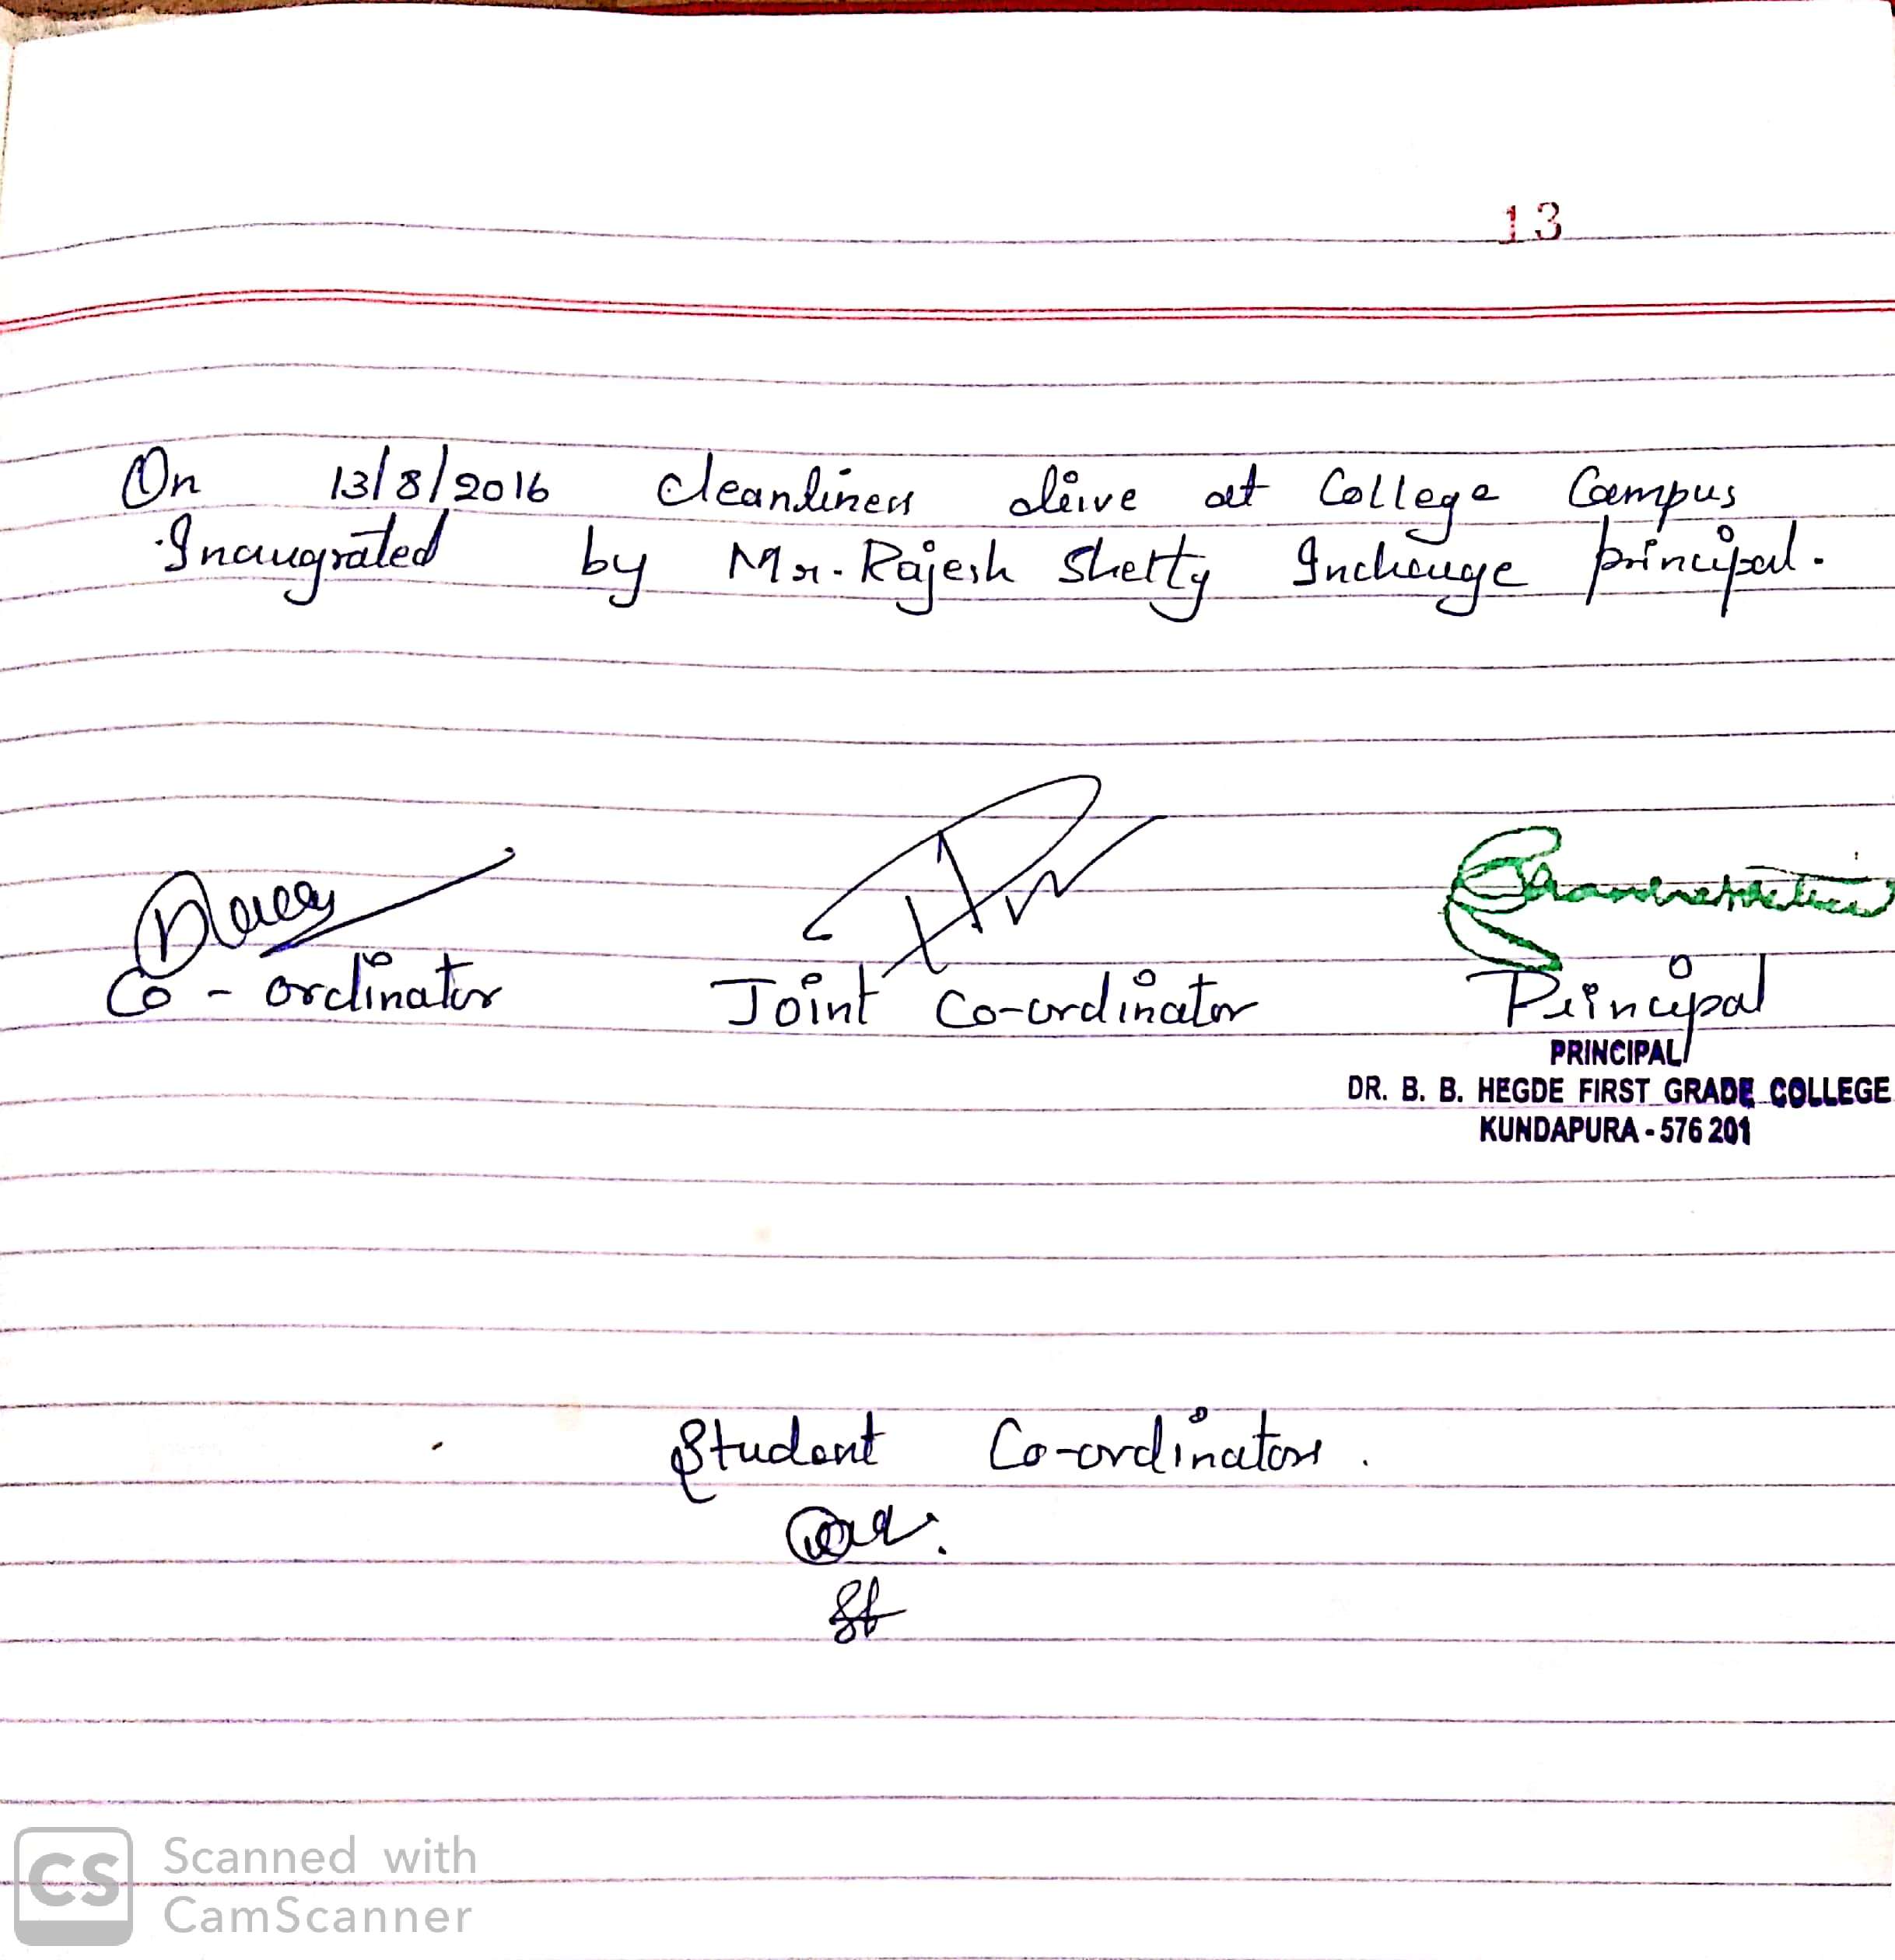 13
On 13/8/2016 cleanliness drive at College Campus
Inaugrated by Mr. Rajesh Shetty Incharge principal.
Co-ordinator Joint Co-ordinator Principal
PRINCIPAL
DR. B. B. HEGDE FIRST GRADE COLLEGE
KUNDAPURA - 576 201
Student Co-ordinators.
CS Scanned with
CamScanner